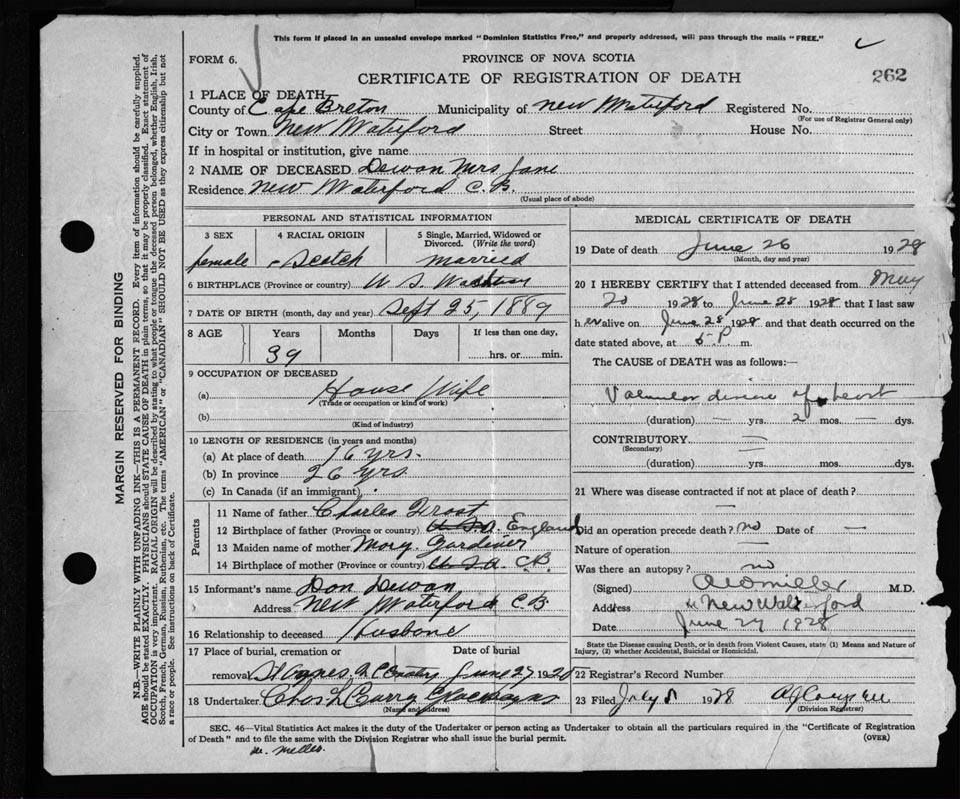 This form if placed in an unsealed envelope marked "Dominion Statistics Free," and properly addressed, will pass through the mails "FREE."
FORM 6.
PROVINCE OF NOVA SCOTIA
CERTIFICATE OF REGISTRATION OF DEATH
262
1 PLACE OF DEATH
County of Cape Breton Municipality of New Waterford Registered No.
(For use of Registrar General only)
City or Town New Waterford Street House No.
If in hospital or institution, give name
2 NAME OF DECEASED Dewan Mrs Jane
Residence New Waterford C.B.
(Usual place of abode)
PERSONAL AND STATISTICAL INFORMATION
3 SEX 4 RACIAL ORIGIN 5 Single, Married, Widowed or Divorced. (Write the word)
female Scotch married
6 BIRTHPLACE (Province or country) U. S.
7 DATE OF BIRTH (month, day and year) Sept 25, 1889
8 AGE Years Months Days If less than one day,
39 hrs. or min.
9 OCCUPATION OF DECEASED
(a) House Wife
(Trade or occupation or kind of work)
(b)
(Kind of industry)
10 LENGTH OF RESIDENCE (in years and months)
(a) At place of death 16 yrs.
(b) In province 26 yrs.
(c) In Canada (if an immigrant)
Parents
11 Name of father Charles Frost
12 Birthplace of father (Province or country) U.S.A. England
13 Maiden name of mother Mary Gardiner
14 Birthplace of mother (Province or country) U.S.A. C.B.
15 Informant's name Dan Dewan
Address New Waterford C.B.
16 Relationship to deceased Husbone
17 Place of burial, cremation or removal Date of burial
St Agnes June 27 1928
18 Undertaker Chas
(Name and address)
MEDICAL CERTIFICATE OF DEATH
19 Date of death June 26 1928
(Month, day and year)
20 I HEREBY CERTIFY that I attended deceased from May
20 1928 to June 28 1928 that I last saw
h er alive on June 28 1928 and that death occurred on the
date stated above, at 5 P. m.
The CAUSE of DEATH was as follows:—
Valvular disease of heart
(duration) — yrs. 2 mos. — dys.
CONTRIBUTORY —
(Secondary)
(duration) — yrs. — mos. — dys.
21 Where was disease contracted if not at place of death? —
Did an operation precede death? no Date of —
Nature of operation —
Was there an autopsy? no
(Signed) Miller M.D.
Address New Waterford
Date June 27 1928
State the Disease causing Death, or in death from Violent Causes, state (1) Means and Nature of Injury, (2) whether Accidental, Suicidal or Homicidal.
22 Registrar's Record Number
23 Filed July 1928
(Division Registrar)
SEC. 46—Vital Statistics Act makes it the duty of the Undertaker or person acting as Undertaker to obtain all the particulars required in the "Certificate of Registration
of Death" and to file the same with the Division Registrar who shall issue the burial permit. (OVER)
MARGIN RESERVED FOR BINDING
N.B.—WRITE PLAINLY WITH UNFADING INK—THIS IS A PERMANENT RECORD. Every item of information should be carefully supplied.
AGE should be stated EXACTLY. PHYSICIANS should STATE CAUSE OF DEATH in plain terms, so that it may be properly classified. Exact statement of
OCCUPATION is very important. RACIAL ORIGIN will be described by stating to what people or tongue the deceased person belonged, whether English, Irish,
Scotch, French, German, Russian, Ruthenian, etc. The terms "AMERICAN" or "CANADIAN" SHOULD NOT BE USED as they express citizenship but not
a race or people. See instructions on back of Certificate.